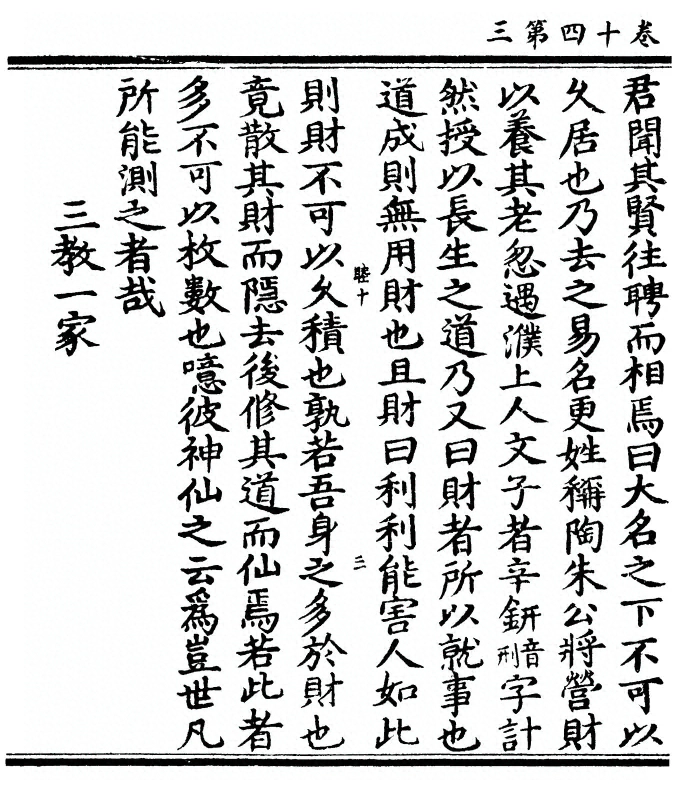 卷十四第三
君聞其賢往聘而相焉曰大名之下不可以
久居也乃去之易名更姓稱陶朱公將營財
以養其老忽遇濮上人文子者辛鈃音刑字計
然授以長生之道乃又曰財者所以就事也
道成則無用財也且財曰利利能害人如此
睦十
三
則財不可以久積也孰若吾身之多於財也
竟散其財而隱去後修其道而仙焉若此者
多不可以枚數也噫彼神仙之云爲豈世凡
所能測之者哉
三教一家